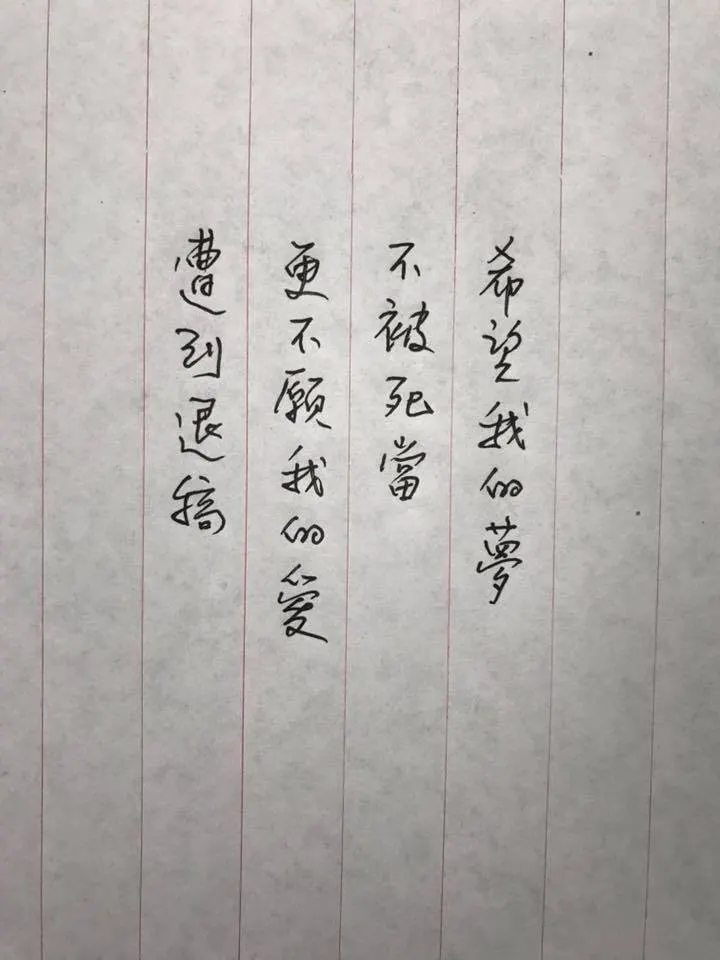 希望我的夢
不被死當
更不願我的愛
遭到退稿